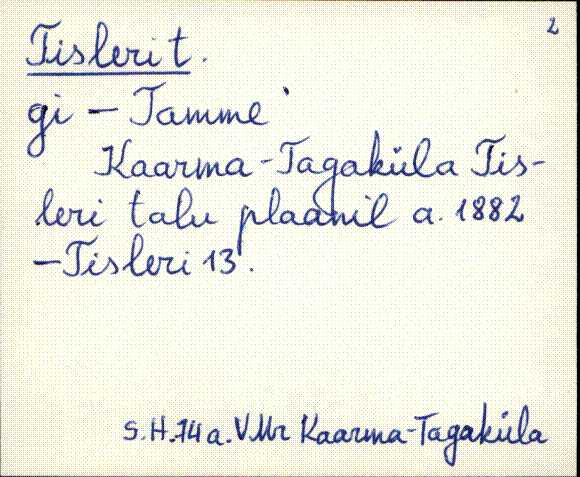 2
Tisleri t.
gi - Tamme
Kaarma-Tagaküla Tis-
leri talu plaanil a. 1882
- Tisleri 13.
S.H. 74 a. V.Mr Kaarma-Tagaküla